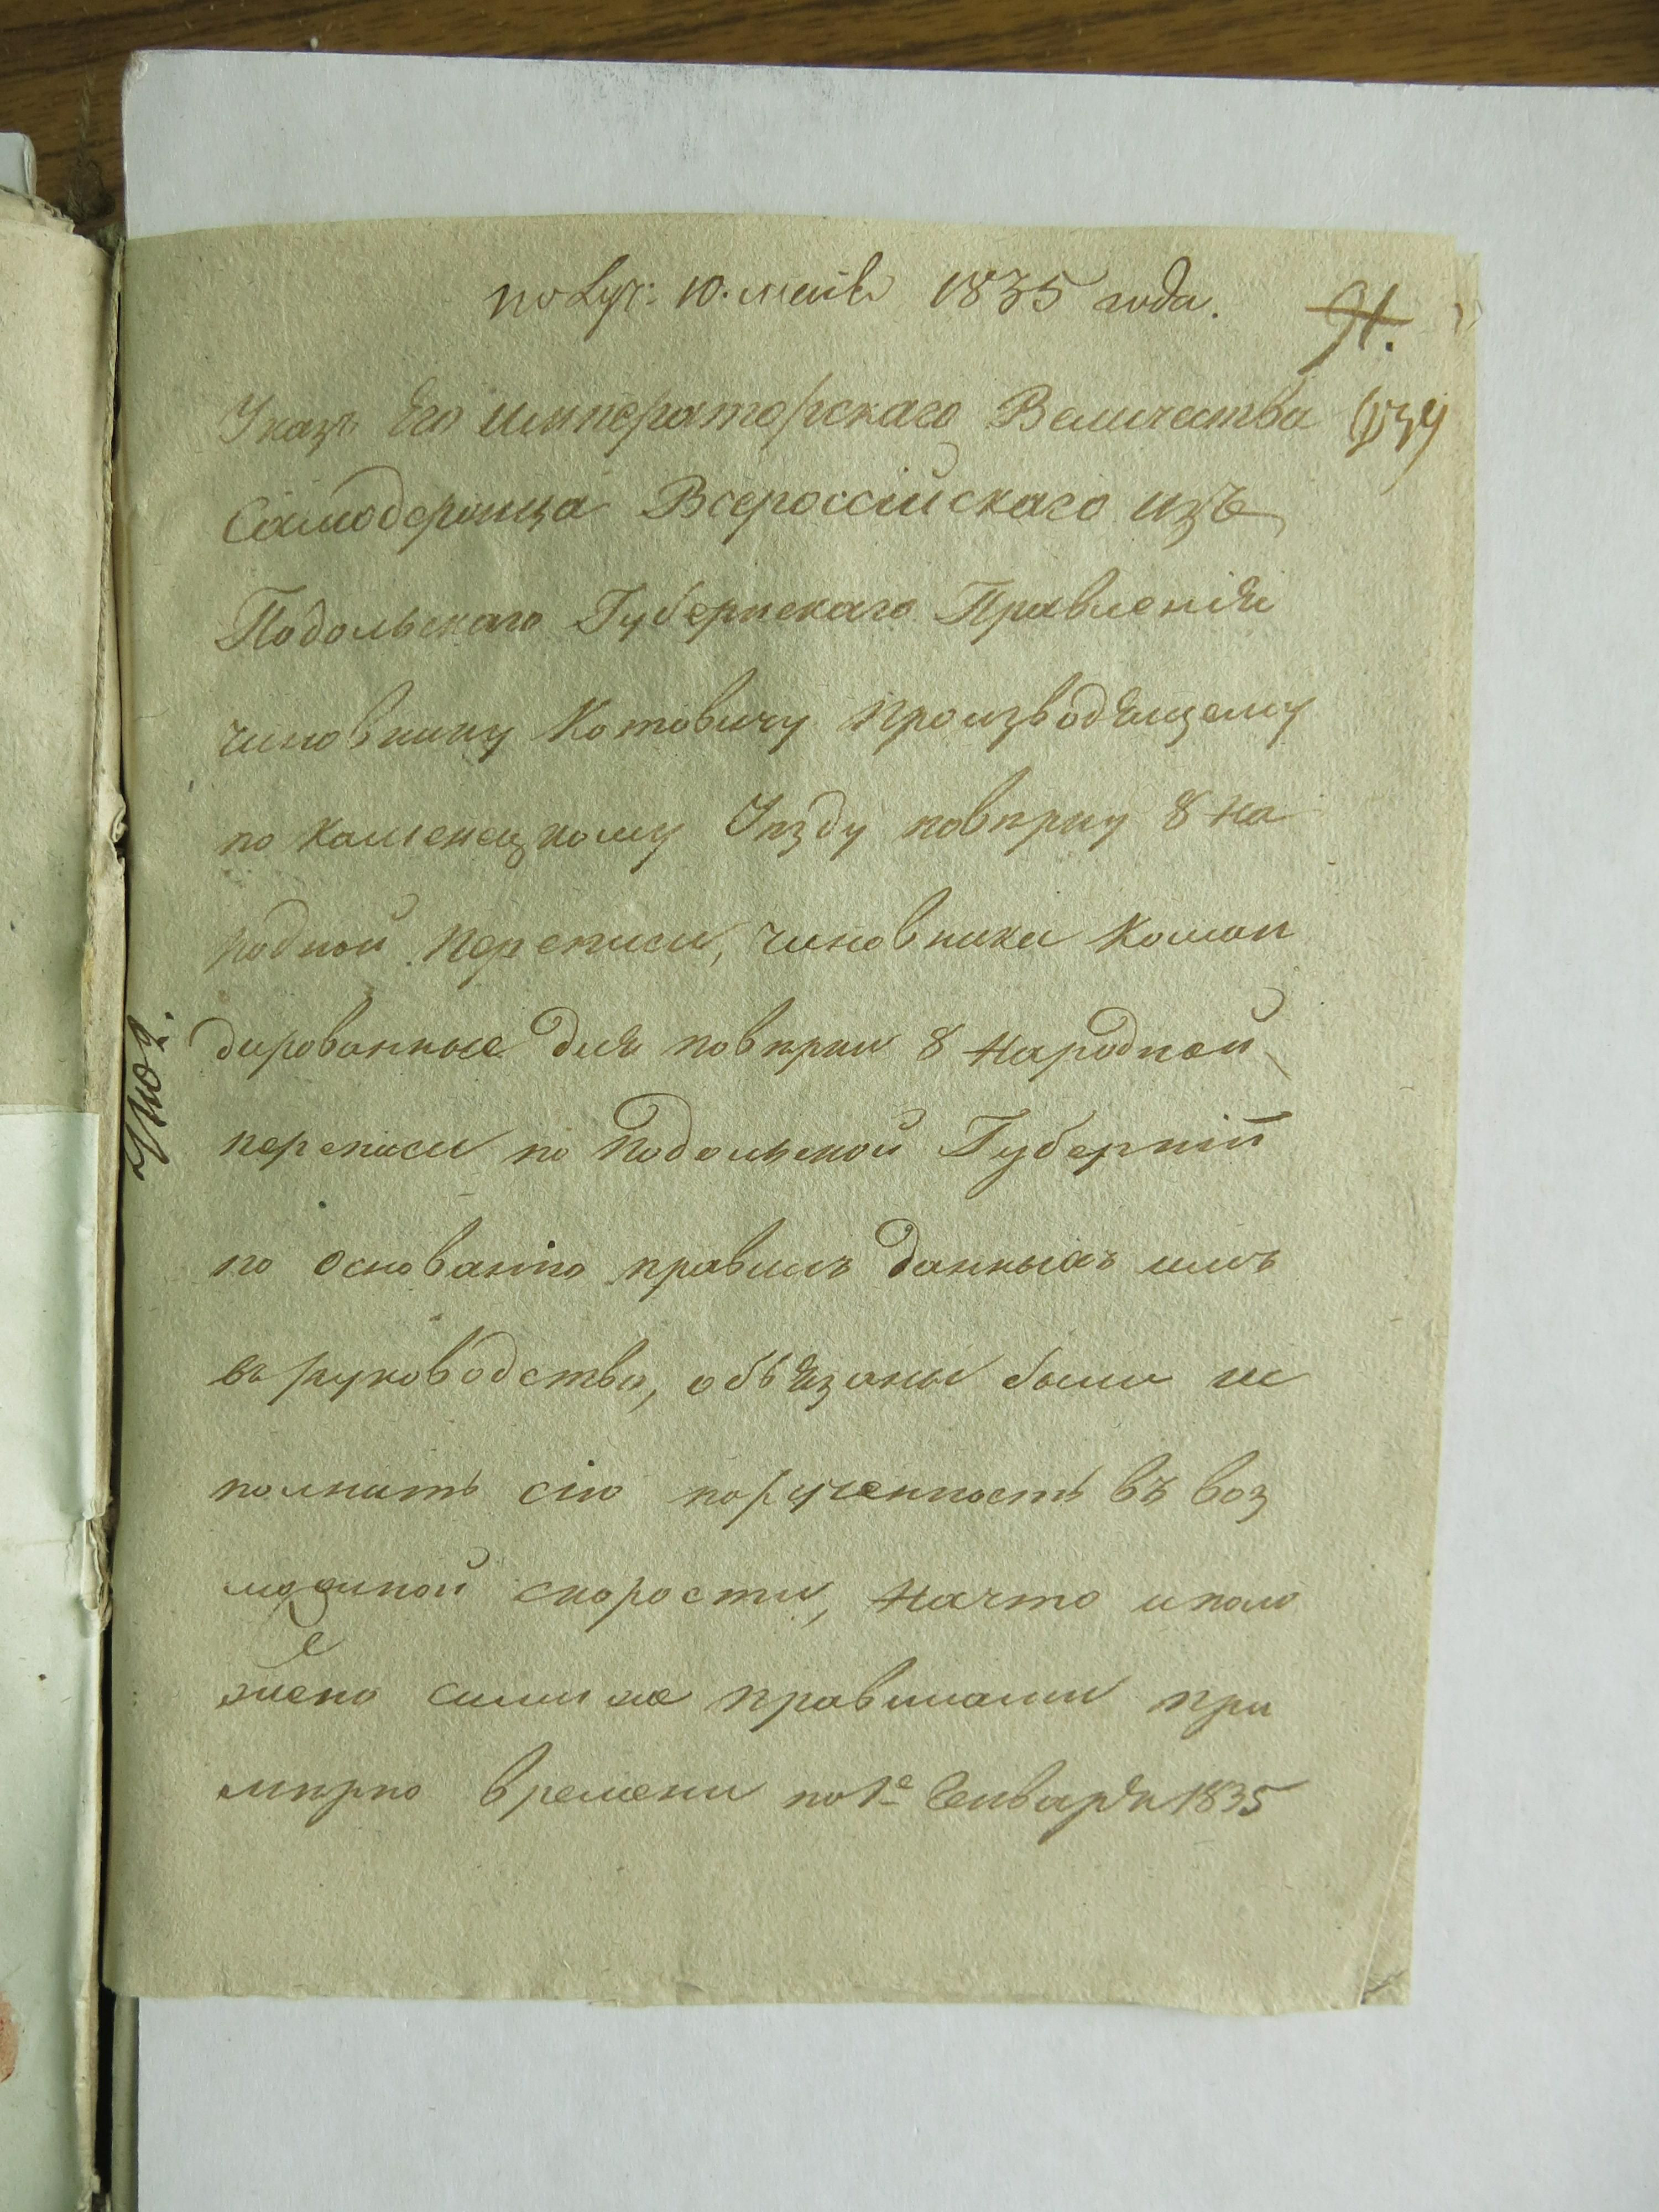 получ: 10. маія 1835 года.
91.
Указъ Его Императорскаго Величества
Самодержца Всероссійскаго изъ
Подольскаго Губернскаго Правленія
чиновнику Котовичу производящему
по каменецкому Уѣзду повѣрку 8 На
родной переписи, чиновники коман
дированные для повѣрки 8 Народной
переписи по Подольской Губерніи
по основанію правилъ данныхъ имъ
въ руководство, обьязаны были ис
полнить сію порученность въ воз
можной скорости, на что и поло
жено симиже правилами при
мѣрно времени по 1е Генваря 1835